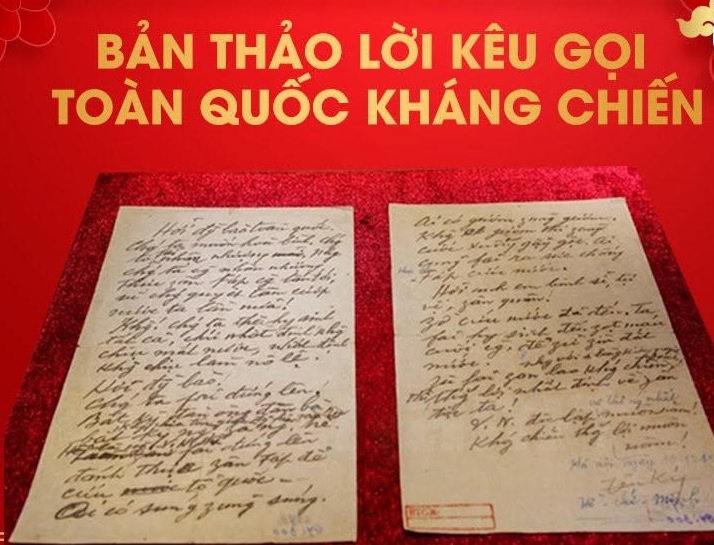 BẢN THẢO LỜI KÊU GỌI
TOÀN QUỐC KHÁNG CHIẾN
Hỡi đ/bào toàn quốc
Chg ta muốn hoà bình, chg
ta fải nhường
chg ta cg nhân nhượng
thực zân Fáp cg lấn tới,
vì chg quyết tâm cướp
nước ta lần nữa!
Khg! chg ta thà hy sinh
tất cả, chứ nhất định khg
chịu mất nước, nhất định
khg chịu làm nô lệ.
Hỡi đg bào!
Chg ta fải đứng lên!
Bất kỳ đàn ông đàn bà
fải đứng lên
đánh thực zân Fáp để
cứu tổ quốc
Ai có súng zùng súng.
Ai có gươm zùng gươm,
Khg có gươm thì zùng
cuốc xuổng gậy gộc. Ai
cũng fải ra sức chống
Fáp cứu nước.
Hỡi anh em binh sĩ, tự
vệ, zân quân!
Zờ cứu nước đã đến. Ta
fải hy sinh đến zọt máu
cuối cg, để zữ zìn đất
nước.
Zù fải zan lao kháng chiến,
thắng lợi nhất định về zân
tộc ta!
V.N. độc lập muôn năm!
Kháng chiến thắng lợi muôn
năm!
Hà nội ngày
Ký
Hồ chí Minh